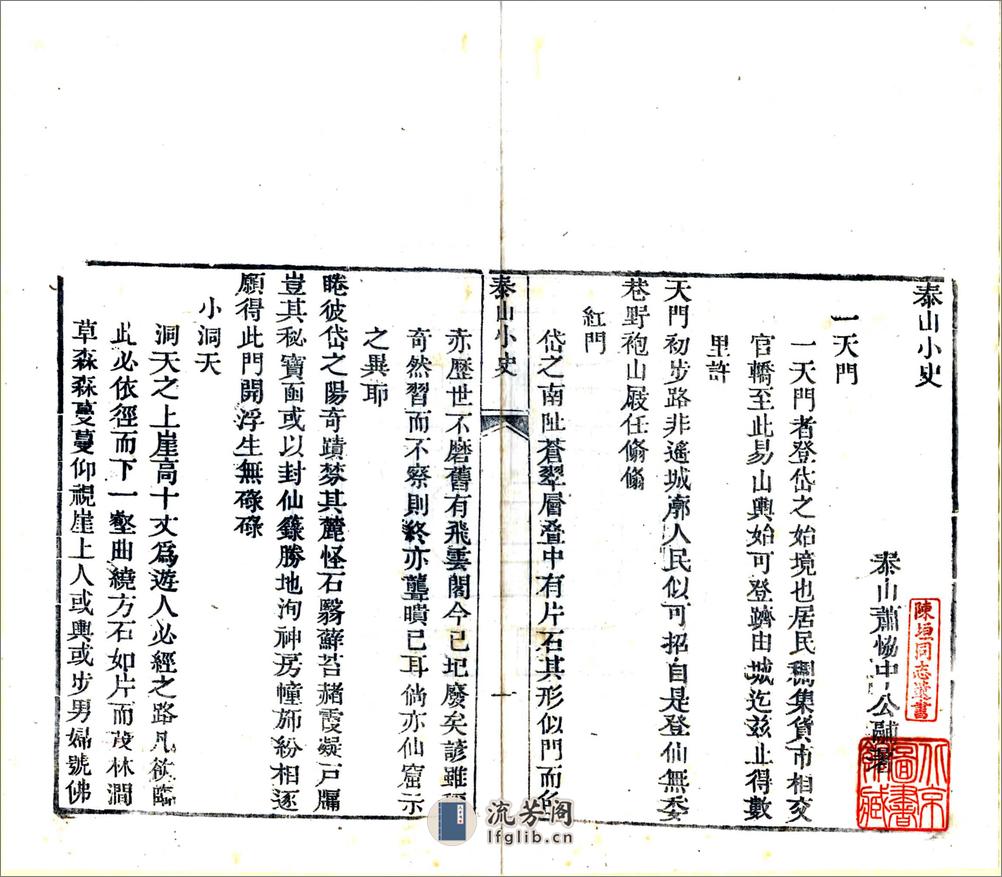 泰山小史
泰山蕭協中公黼著
陳垣同志遺書
北京圖書館藏
一天門
一天門者登岱之始境也居民稠集貨市相交
官轎至此易山輿始可登躋由城迄茲止得數
里許
天門初步路非遙城廓人民似可招自是登仙無委
巷野袍山屐任翛翛
紅門
岱之南阯蒼翠層叠中有片石其形似門而色
泰山小史
一
亦歷世不磨舊有飛雲閣今已圮廢矣諺雖
奇然習而不察則終亦聾瞶已耳倘亦仙窟示
之異耶
睠彼岱之陽奇蹟棼其麓怪石翳蘚苔赭霞凝戸牖
豈其秘寶函或以封仙籙勝地洵神房幢斾紛相逐
願得此門開浮生無碌碌
小洞天
洞天之上崖高十丈爲遊人必經之路凡欲臨
此必依徑而下一壑曲繞方石如片而茂林澗
草森森蔓蔓仰視崖上人或輿或步男婦號佛
流芳阁
lfglib.cn